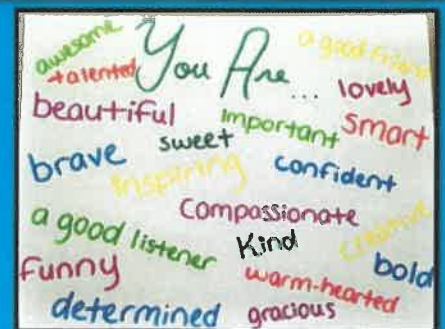 awesome
a good friend
talented
You Are...
lovely
beautiful
important
smart
sweet
brave
inspiring
confident
Compassionate
a good listener
Kind
creative
bold
funny
warm-hearted
determined
gracious